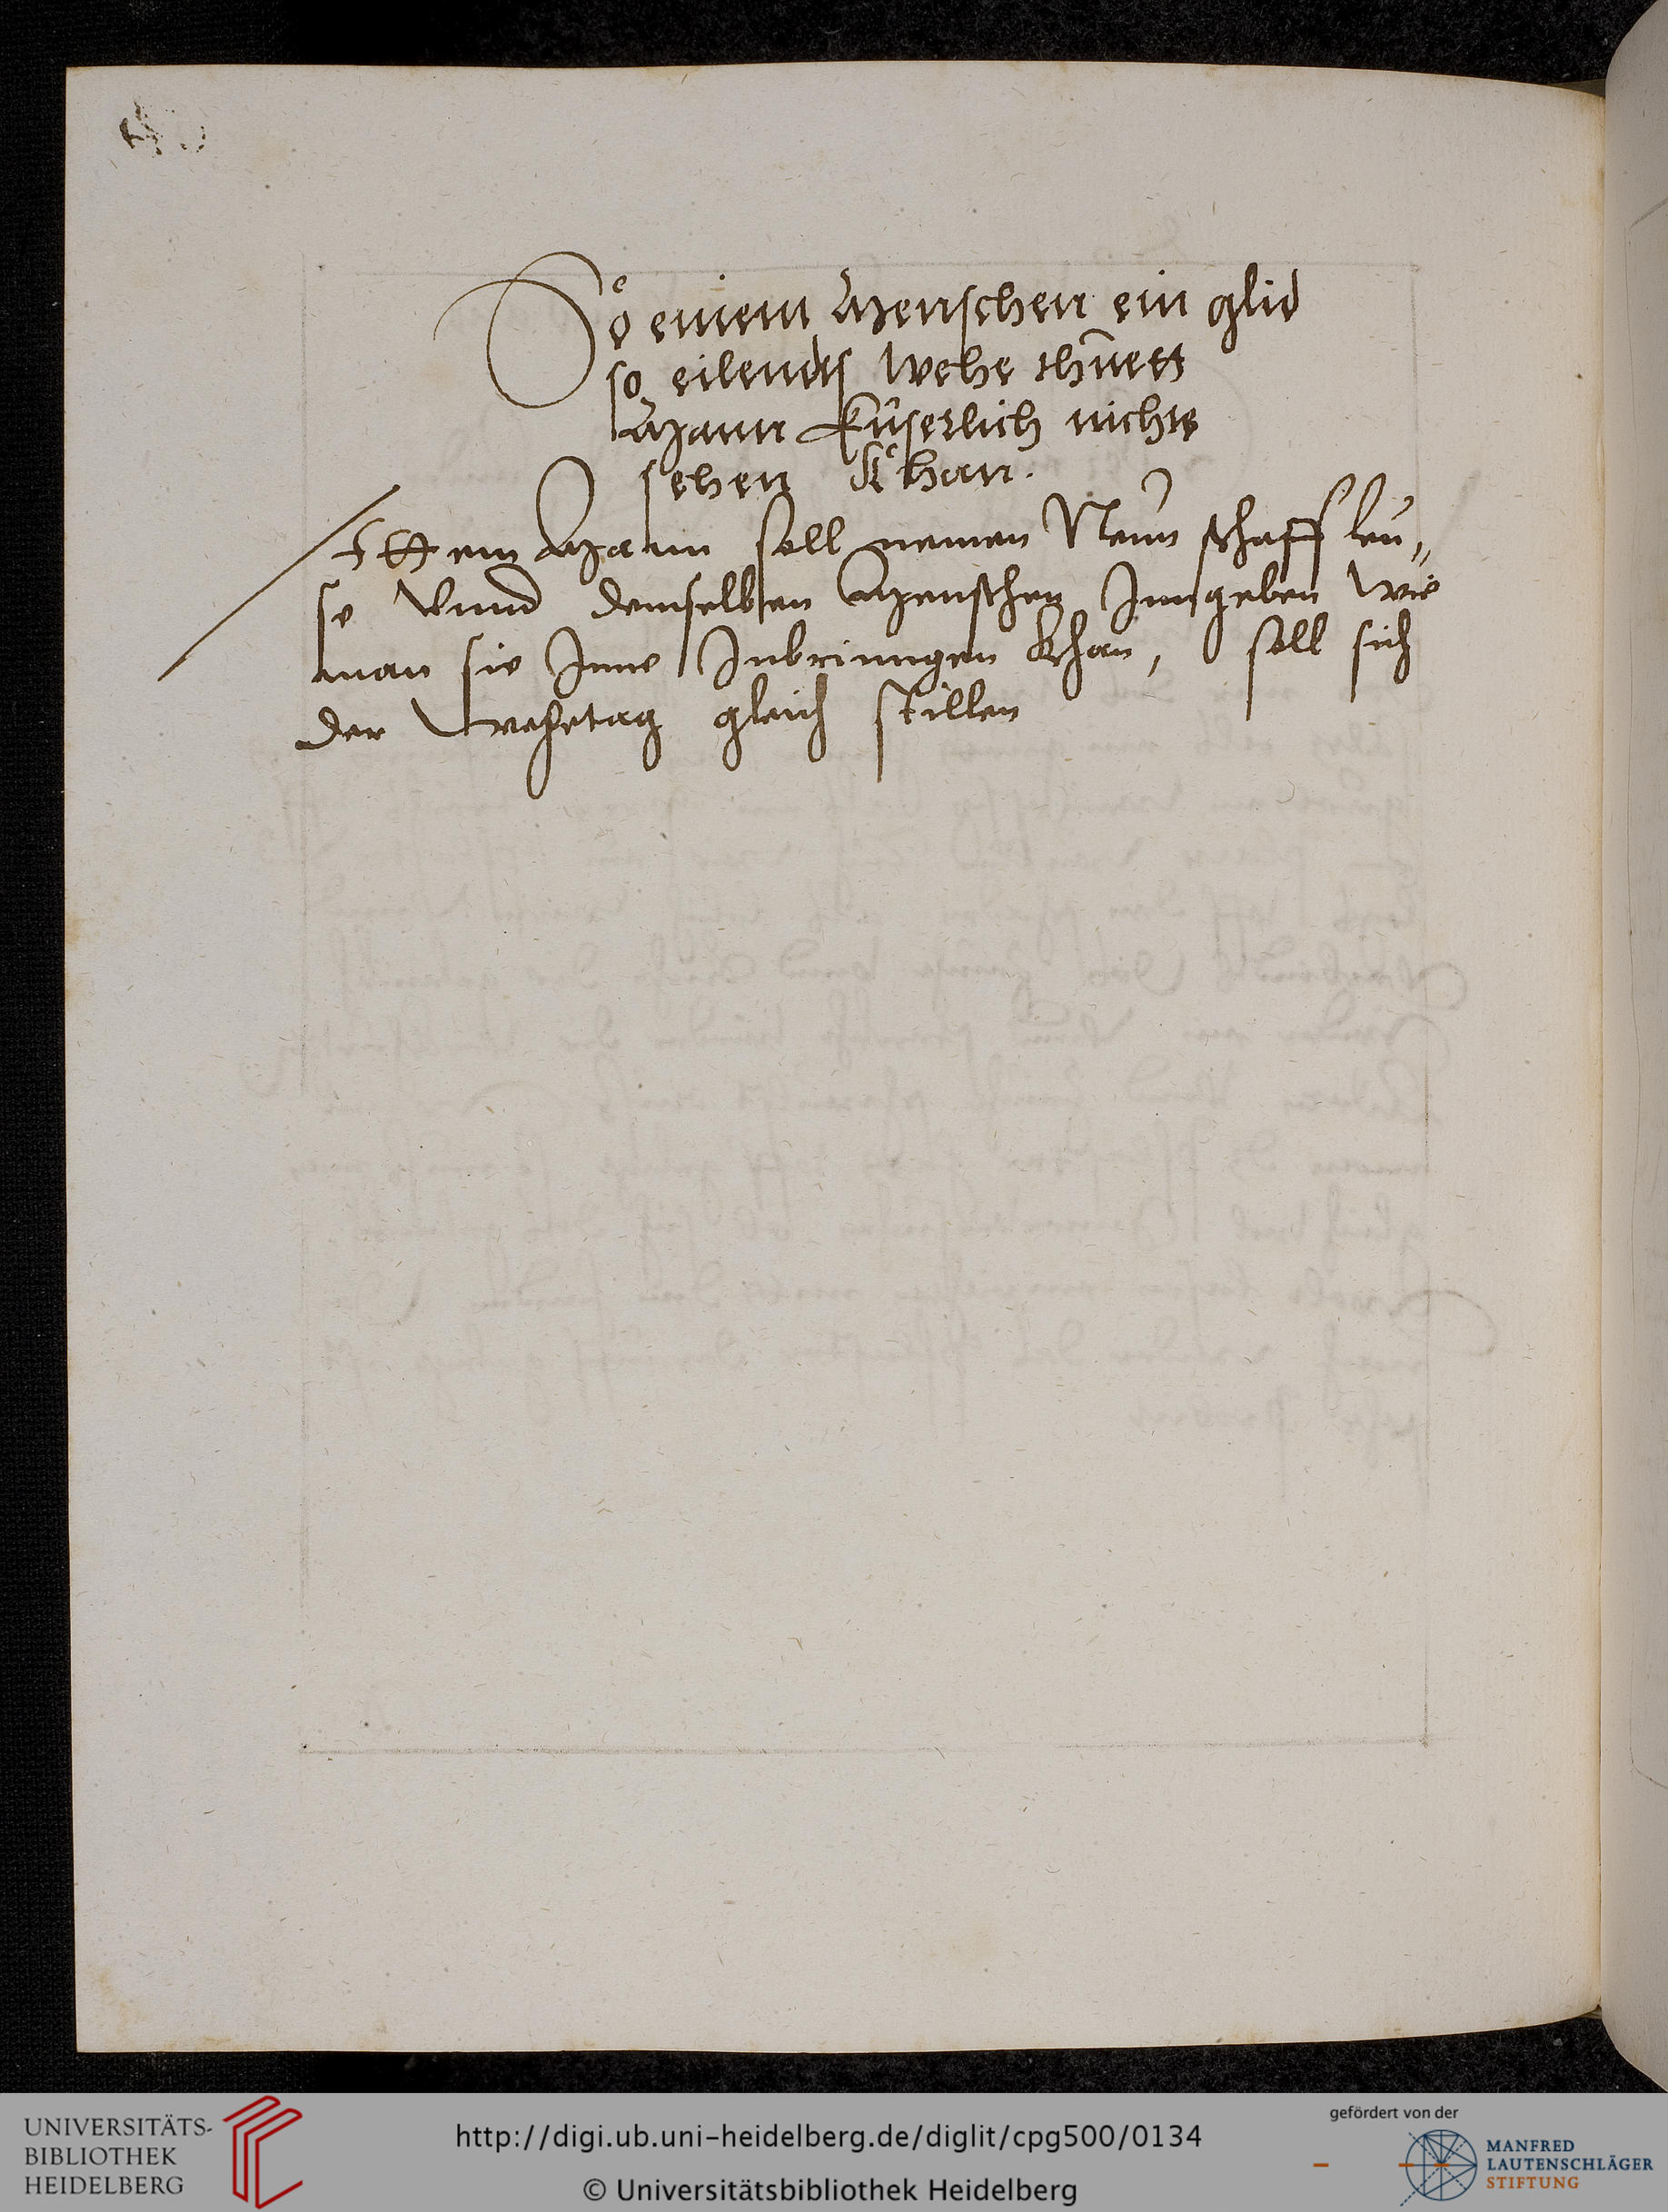 So einem Menschen ein glid
so eilendts wehe thuett
Mann Eüserlich nichts
sehen khan.
Ittem Mann soll nemen Neun schaff leu„
se vnnd demselben Menschen Inn geben wie
man sie Inne Inbrinngen khan, soll sich
der wehetag gleich stillen
UNIVERSITÄTS-
BIBLIOTHEK
HEIDELBERG
http://digi.ub.uni-heidelberg.de/diglit/cpg500/0134
© Universitätsbibliothek Heidelberg
gefördert von der
MANFRED
LAUTENSCHLÄGER
STIFTUNG